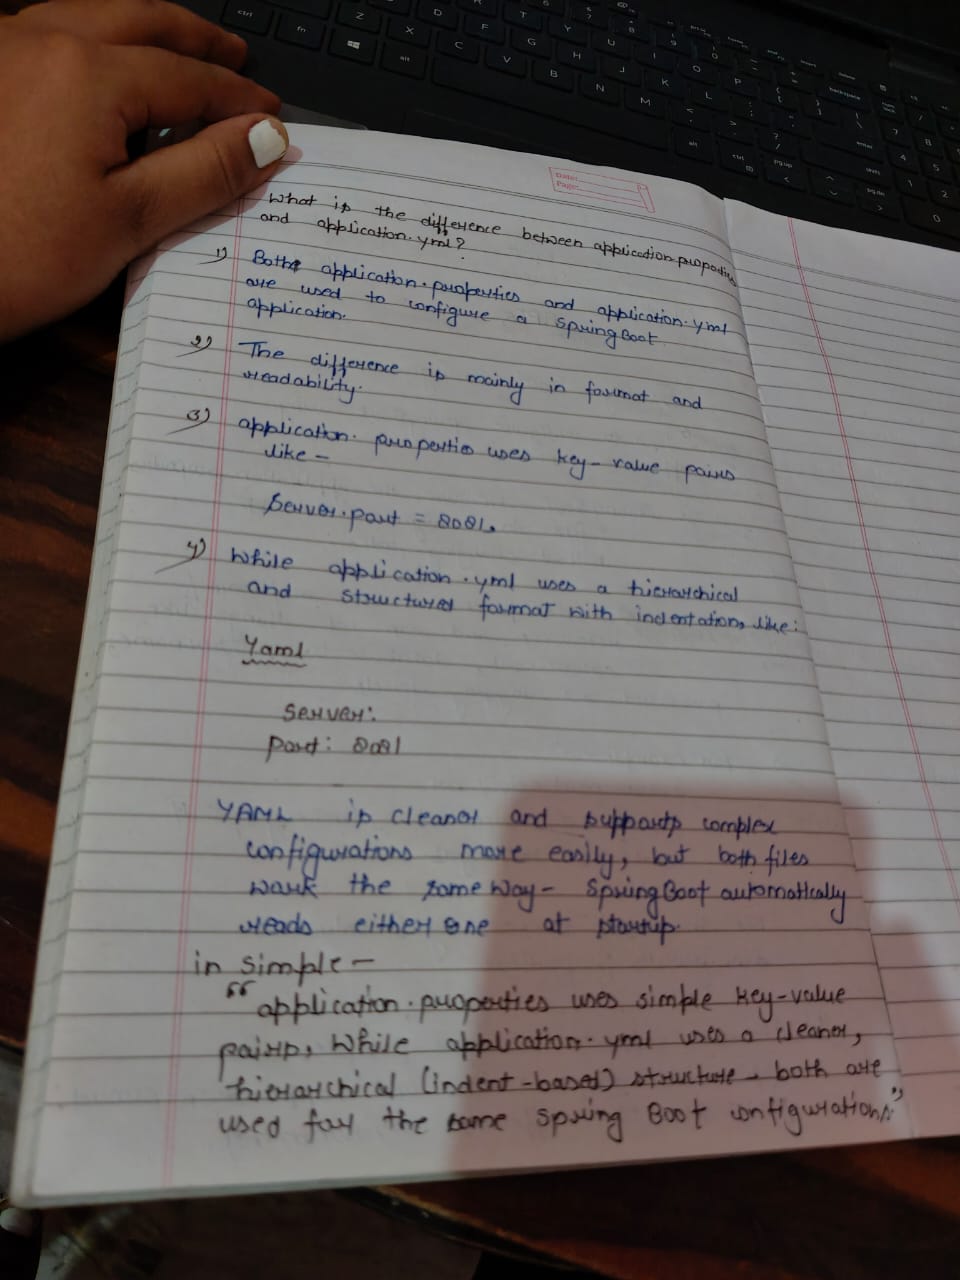 Date:
Page:
What is the difference between application.properties
and application.yml?
1) Both application.properties and application.yml
are used to configure a Spring Boot
application.
2) The difference is mainly in format and
readability.
3) application.properties uses key-value pairs
like -
Server.port = 8081.
4) While application.yml uses a hierarchical
and structured format with indentation, like:
Yaml
Server:
Port: 8081
YAML is cleaner and supports complex
configurations more easily, but both files
work the same way - Spring Boot automatically
reads either one at startup.
in simple -
"application.properties uses simple key-value
pairs, while application.yml uses a cleaner,
hierarchical (indent-based) structure - both are
used for the same Spring Boot configurations."